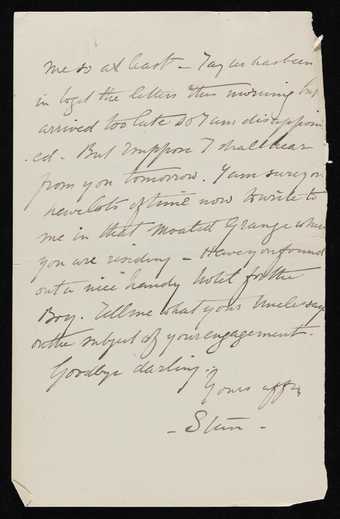 me so at least - Tay us has been
in to get the letters this morning but
arrived too late so I am disappoin
ted - But I suppose I shall hear
from you tomorrow. I am sure you
have lots of time now to write to
me in that Moated Grange where
you are residing - Have you found
out a nice handy hotel for the
Boy. Tell me what your Uncle says
on the subject of your engagement.
Goodbye darling.
Yours affly